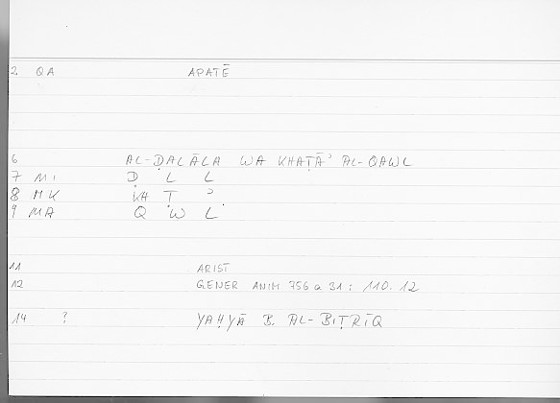 2 QA APATĒ
6 AL-ḌALĀLA WA KHAṬĀʾ AL-QAWL
7 MI Ḍ L L
8 MK KH Ṭ ʾ
9 MA Q W L
11 ARIST
12 GENER ANIM 756 a 31 : 110.12
14 ? YAḤYĀ B. AL-BIṬRĪQ